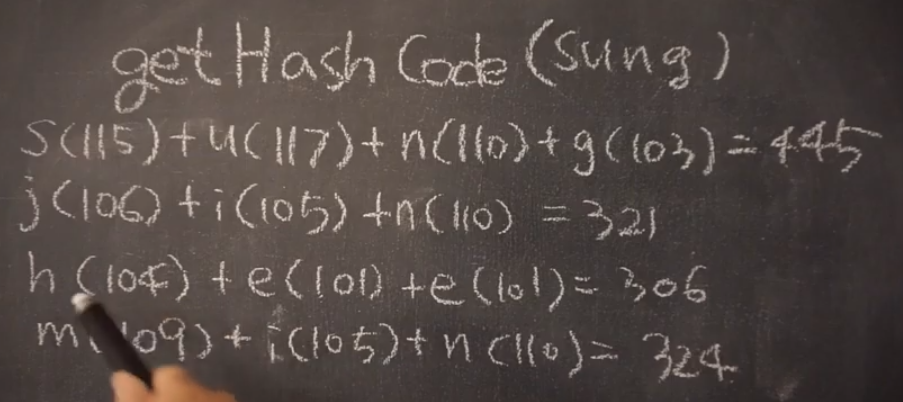 getHashCode(sung)
s(115)+u(117)+n(110)+g(103)=445
j(106)+i(105)+n(110)=321
h(104)+e(101)+e(101)=306
m(109)+i(105)+n(110)=324